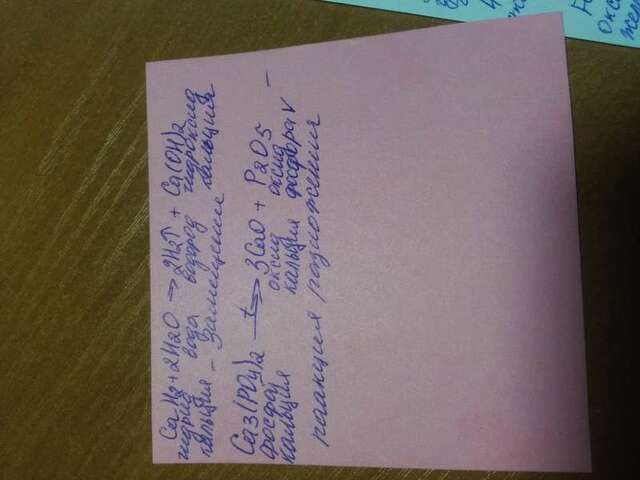 CaH2+2H2O → 2H2↑ + Ca(OH)2
гидрид вода водород гидроксид
кальция – замещения кальция
Ca3(PO4)2 t→ 3CaO + P2O5
фосфат оксид оксид
кальция кальция фосфора V –
реакция разложения